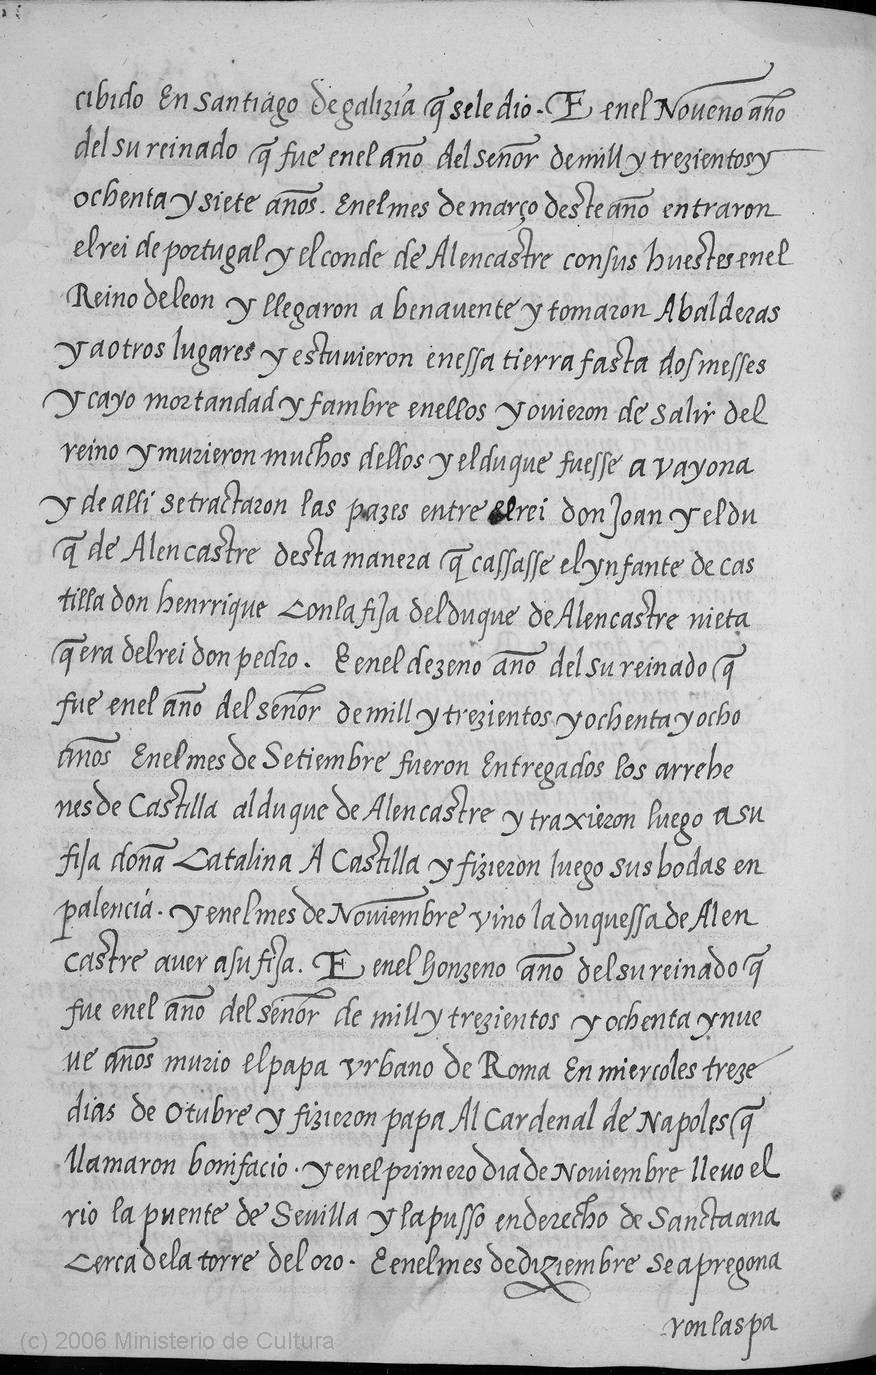 cibido En santiago de galizia q̃ se le dio. E en el Noueno año
del su reinado q̃ fue en el año del señor de mill y trezientos y
ochenta y siete años. En el mes de março deste año entraron
el rei de portugal y el conde de Alencastre con sus huestes en el
Reino de leon y llegaron a benauente y tomaron A balderas
y a otros lugares y estuuieron en essa tierra fasta dos messes
y cayo mortandad y fambre en ellos y ouieron de salir del
reino y murieron muchos dellos y el duque fuesse a vayona
y de alli se tractaron las pazes entre el rei don Joan y el du
q̃ de Alencastre desta manera q̃ cassasse el ynfante de cas
tilla don henrrique Con la fija del duque de Alencastre nieta
q̃ era del rei don pedro. E en el dezeno año del su reinado q̃
fue en el año del señor de mill y trezientos y ochenta y ocho
años En el mes de Setiembre fueron Entregados los arrehe
nes de Castilla al duque de Alencastre y traxieron luego a su
fija doña Catalina A Castilla y fizieron luego sus bodas en
palencia. y en el mes de Nouiembre vino la duquessa de Alen
castre a uer a su fija. E en el honzeno año del su reinado q̃
fue en el año del señor de mill y trezientos y ochenta y nue
ue años murio el papa vrbano de Roma En miercoles treze
dias de Otubre y fizieron papa Al Cardenal de Napoles q̃
llamaron bonifacio. y en el primero dia de Nouiembre lleuo el
rio la puente de Seuilla y la pusso en derecho de Sancta ana
Cerca de la torre del oro. E en el mes de diziembre se apregona
ron las pa
(c) 2006 Ministerio de Cultura